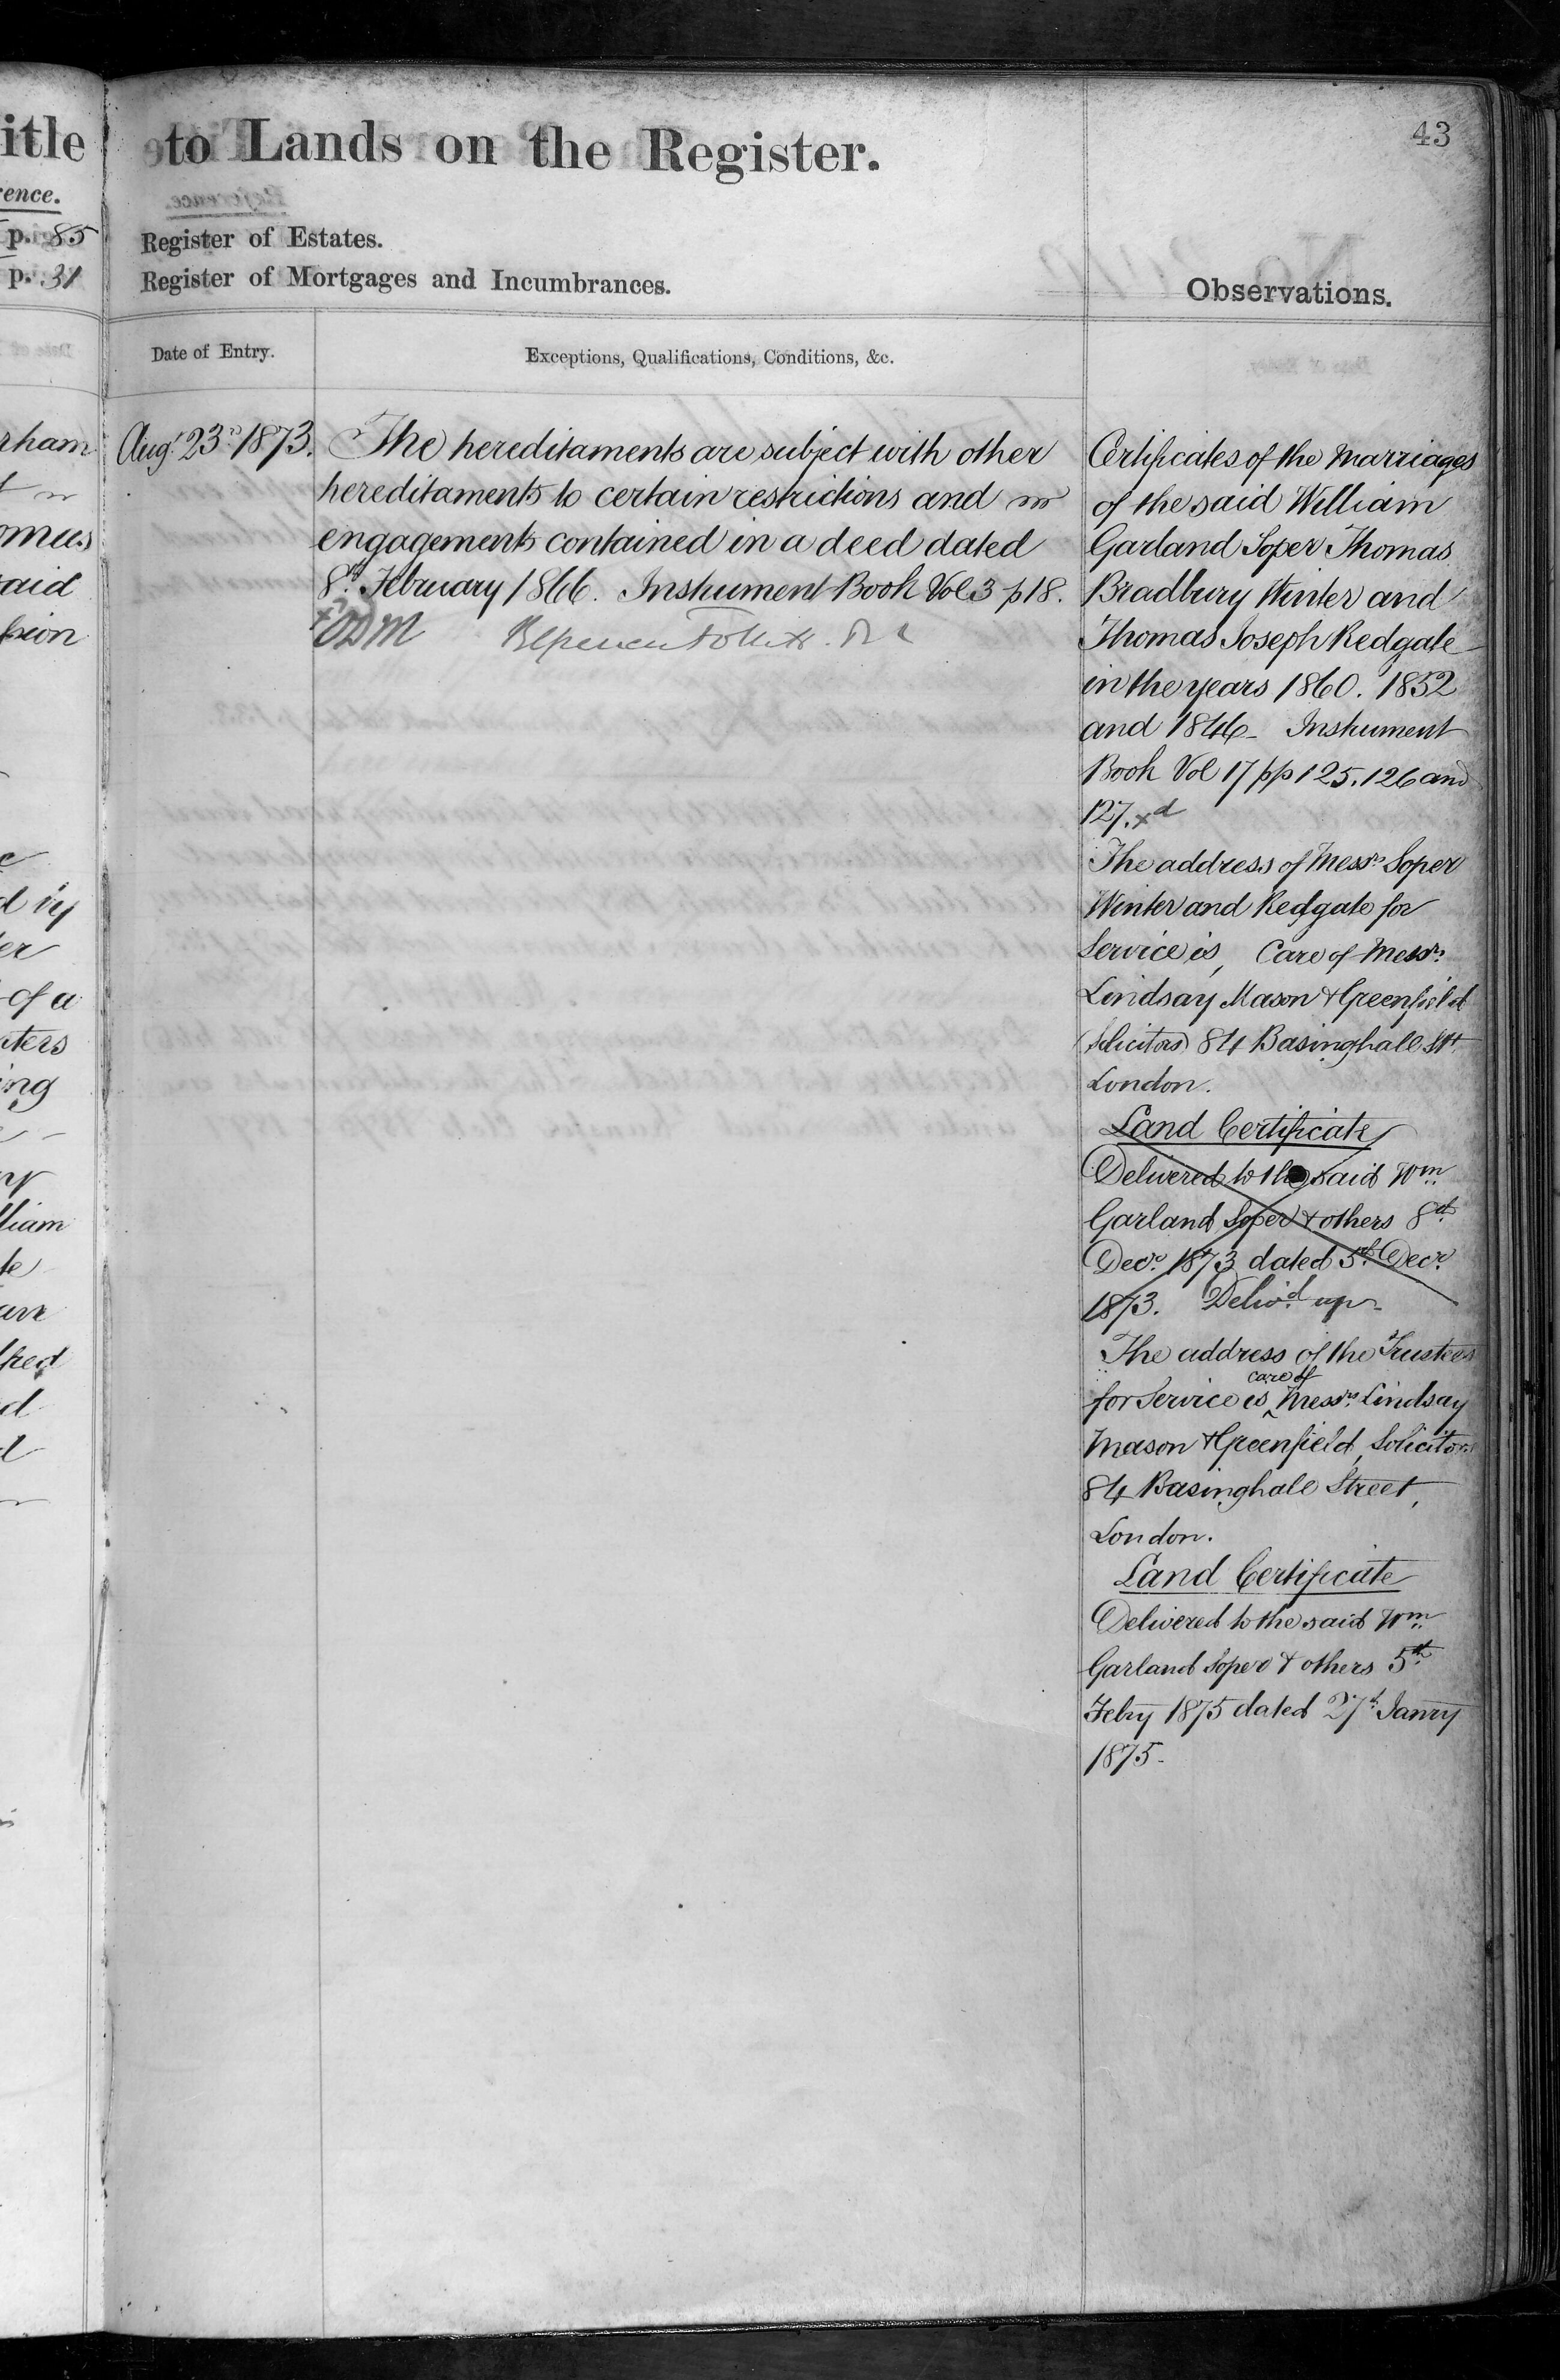 itle
rence.
p. 85
p. 31
rham
omas
said
sion
d by
er
of a
ing
liam
to Lands on the Register.
43
Register of Estates.
Register of Mortgages and Incumbrances.
Observations.
Date of Entry.
Exceptions, Qualifications, Conditions, &c.
Augt 23rd 1873.
The hereditaments are subject with other
hereditaments to certain restrictions and
engagements contained in a deed dated
8th February 1866. Instrument Book Vol 3 p 18.
Certificates of the marriages
of the said William
Garland Soper Thomas
Bradbury Winter and
Thomas Joseph Redgate
in the years 1860. 1852
and 1846 - Instrument
Book Vol 17 pp 125. 126 and
127. xd
The address of Messrs Soper
Winter and Redgate for
Service is, Care of Messrs
Lindsay Mason & Greenfield
(Solicitors) 84 Basinghall Stt
London.
Land Certificate
Delivered to the said Wm
Garland Soper & others 8th
Decr 1873 dated 5th Decr
1873. Delivd up -
The address of the Trustees
for Service is care of Messrs Lindsay
Mason & Greenfield, Solicitors
84 Basinghall Street,
London.
Land Certificate
Delivered to the said Wm
Garland Soper & others 5th
Feby 1875 dated 27th Janry
1875 -